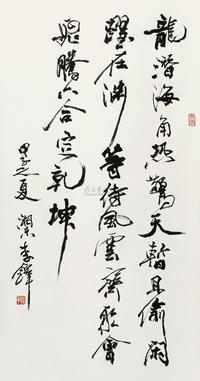 龍潛海角恐驚天暫且偷閑
躍在淵等待風雲齊聚會
飛騰六合定乾坤
甲子之夏 李鐸